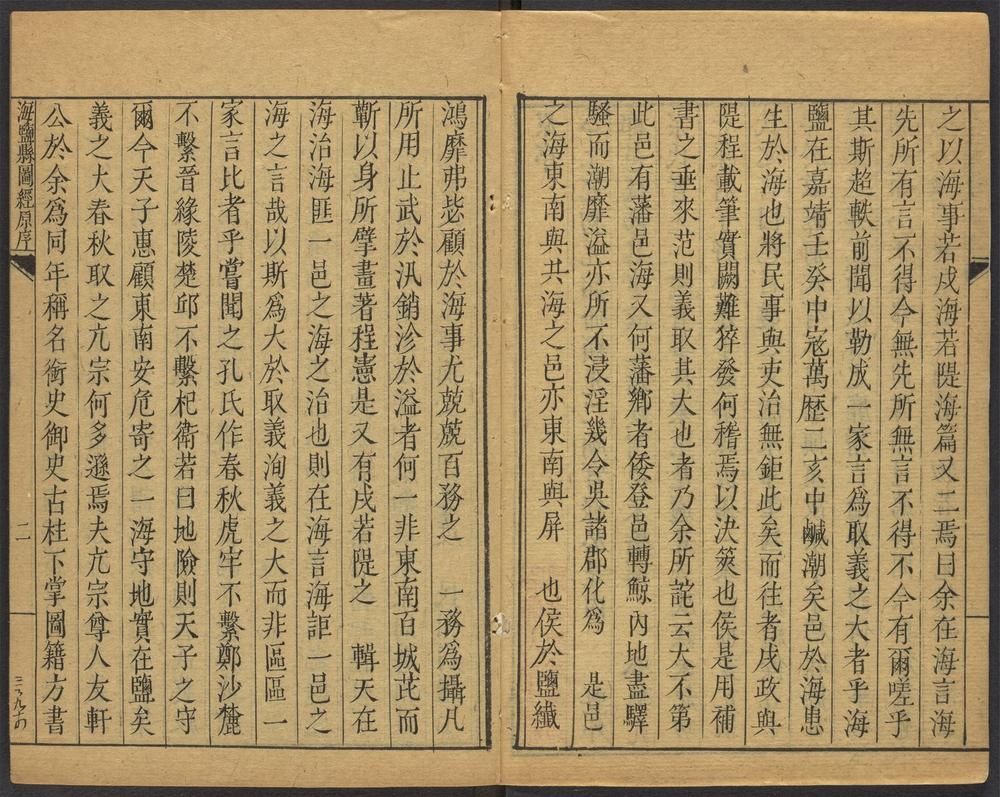 之以海事若戍海若隄海篇又二焉曰余在海言海
先所有言不得今無先所無言不得不今有爾嗟乎
其斯超軼前聞以勒成一家言爲取義之大者乎海
鹽在嘉靖壬癸中寇萬歷二亥中鹹潮矣邑於海患
生於海也將民事與吏治無鉅此矣而往者戍政與
隄程載筆實闕難猝發何稽焉以決筴也侯是用補
書之垂來范則義取其大也者乃余所詫云大不第
此邑有藩邑海又何藩鄉者倭登邑轉鯨內地盡驛
騷而潮靡溢亦所不浸淫幾令吳諸郡化爲 是邑
之海東南與其海之邑亦東南與屏 也侯於鹽纎
鴻靡弗毖顧於海事尤兢兢百務之 一務爲攝凡
所用止武於汛銷沴於溢者何一非東南百城茊而
蘄以身所擘畫著程憲是又有戍若隄之 輯天在
海治海匪一邑之海之治也則在海言海詎一邑之
海之言哉以斯爲大於取義洵義之大而非區區一
家言比者乎嘗聞之孔氏作春秋虎牢不繫鄭沙麓
不繫晉緣陵楚邱不繫杞衛若曰地險則天子之守
爾今天子惠顧東南安危寄之一海守地實在鹽矣
義之大春秋取之亢宗何多遜焉夫亢宗尊人友軒
公於余爲同年稱名銜史御史古柱下掌圖籍方書
海鹽縣圖經原序
二